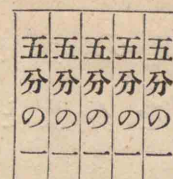 五分の一
五分の一
五分の一
五分の一
五分の一